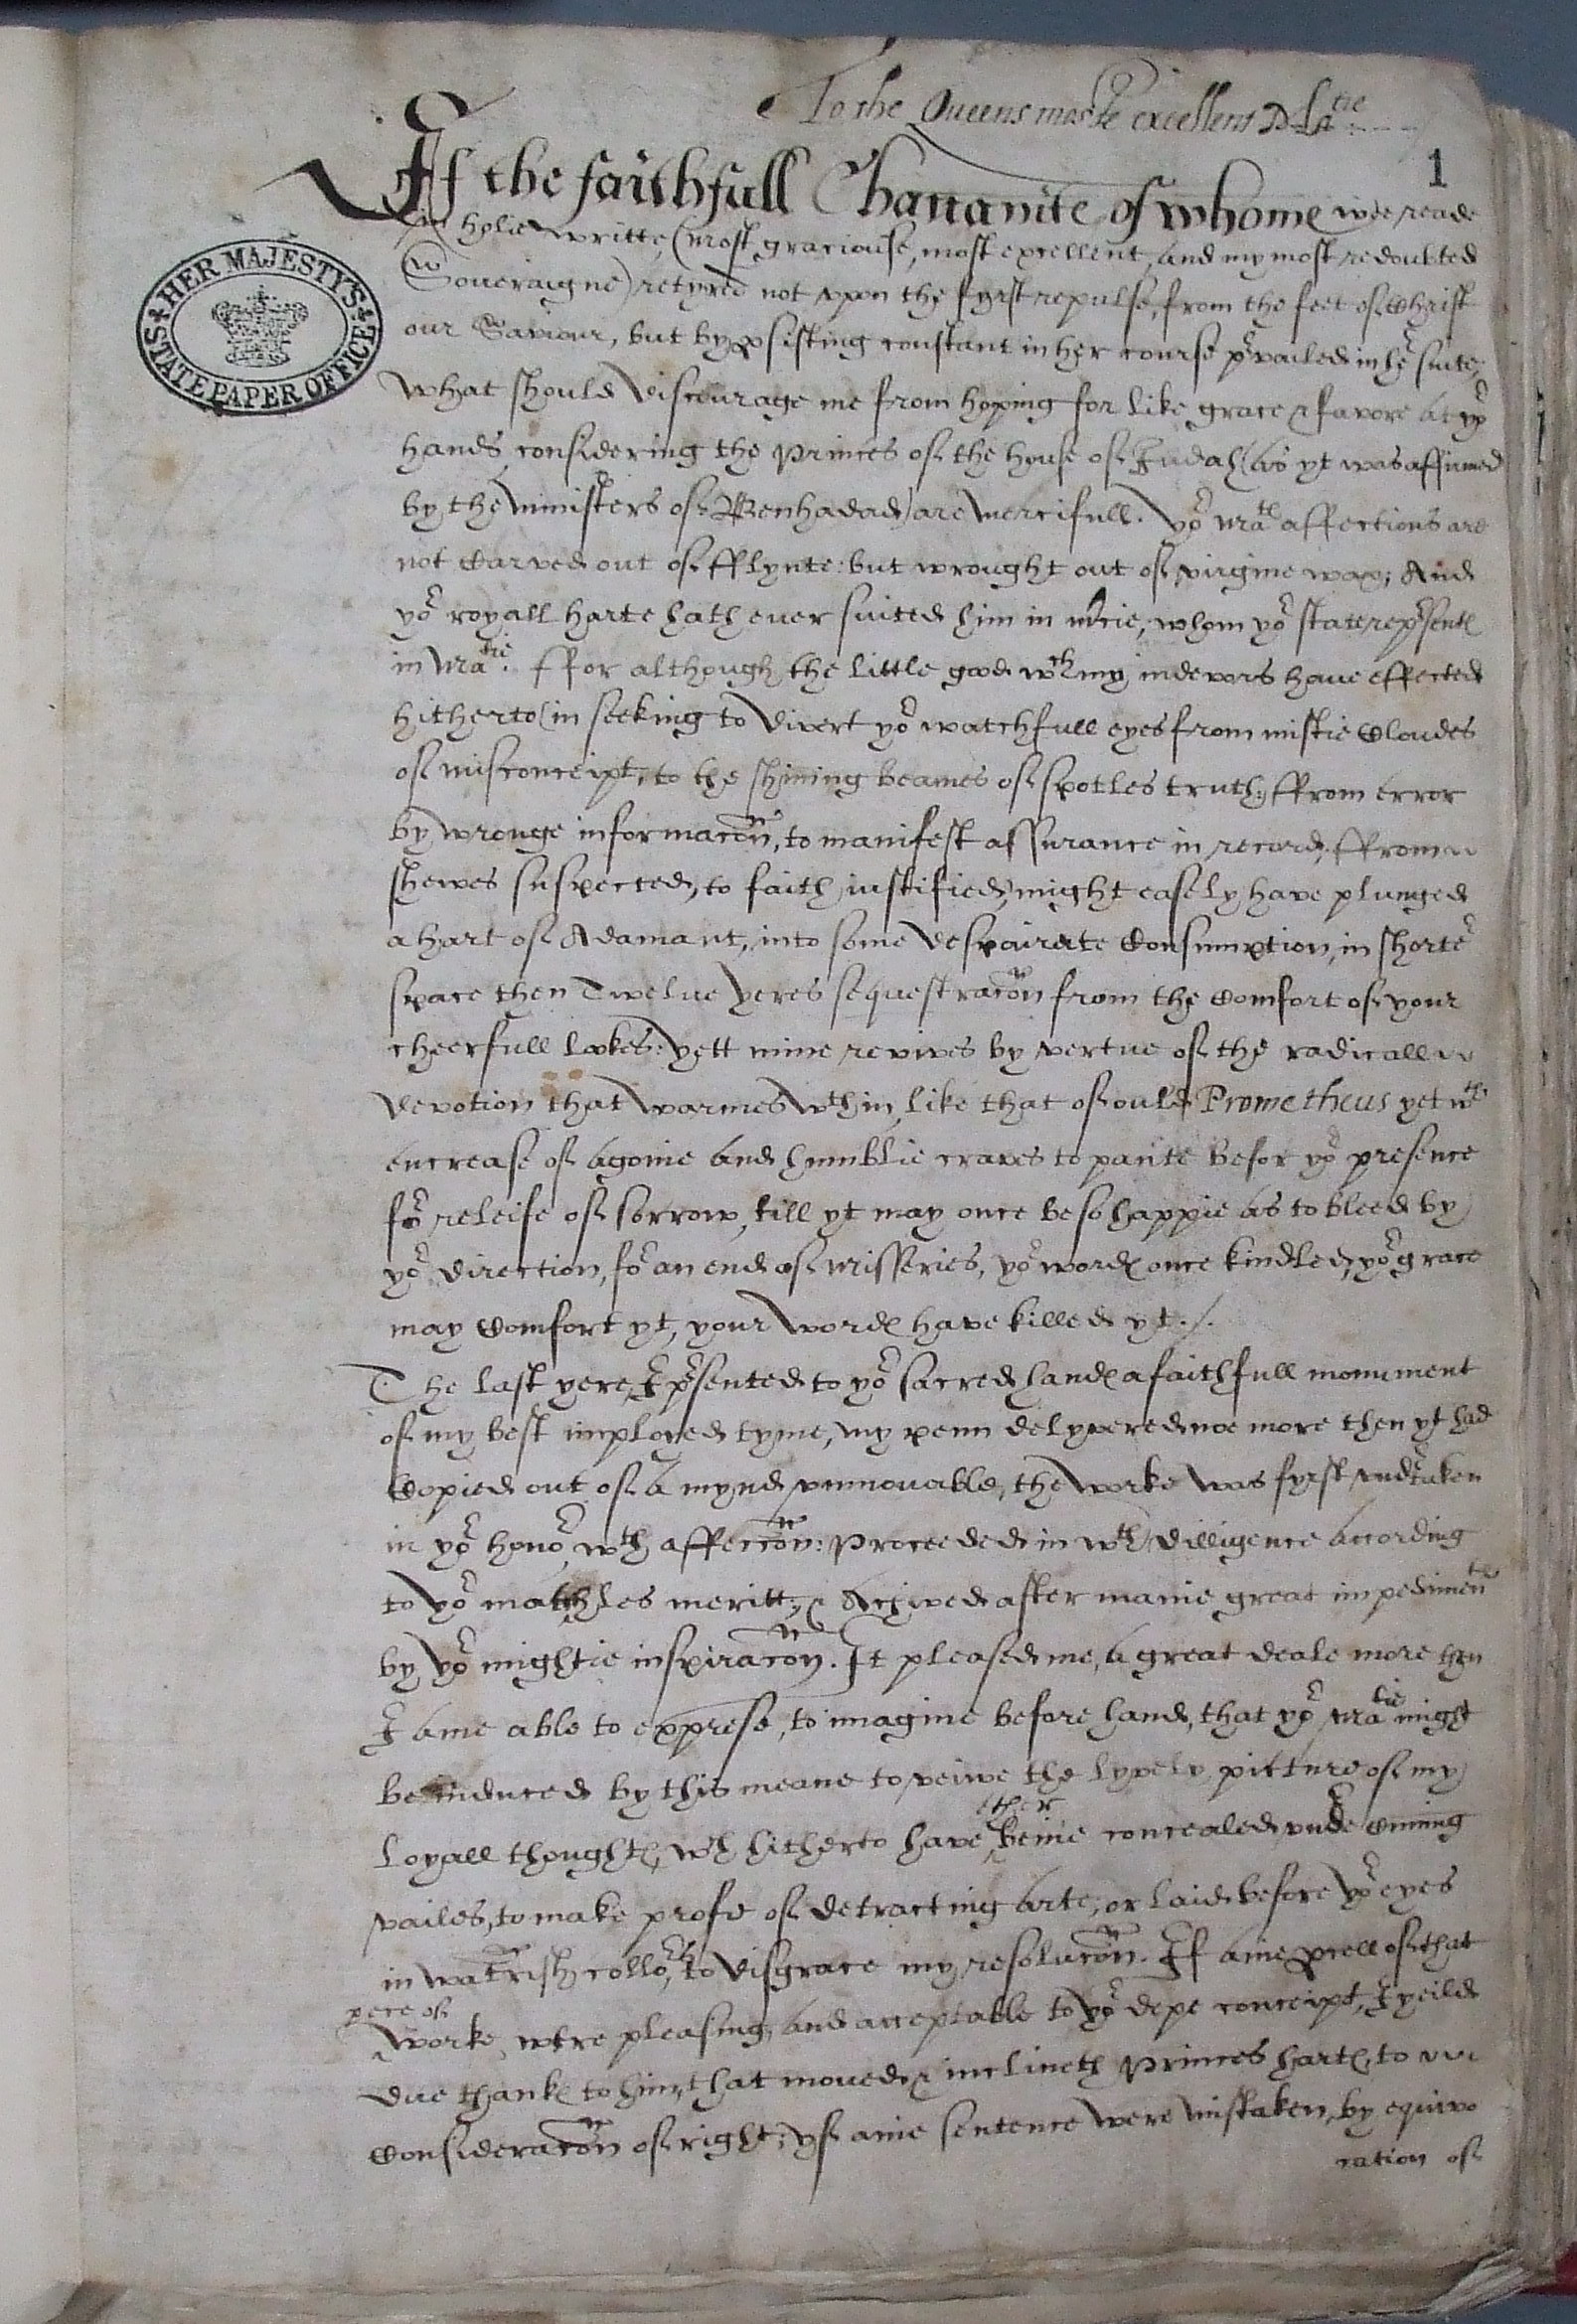 To the Queens moste excellent Matie
1
If the faithfull Chananite of whome wee reade
in holie writte, (most graciouse, most excellent, and my most redoubted
Soueraigne) retyred not vpon the fyrst repulse, from the feet of Christ
our Saviour, but by psisting constant in her course pvailed in her suite,
HER MAJESTY'S STATE PAPER OFFICE
what should discourage me from hoping for like grace & favore at yor
hands considering the Princes of the house of Iudah (as yt was affirmed
by the ministers of Benhadad) are mercifull. Yor Matis affections are
not carved out of fflynte: but wrought out of virgine wax; And
yor royall harte hath euer suited him in mercie, whom yor state representes
in Matie. ffor although the little good wch my indevors haue effected
hitherto (in seeking to divert yor watchfull eyes from mistie cloudes
of misconceipt, to the shining beames of spotles truth, ffrom error
by wronge informacon, to manifest assurance in record, ffrom
shewes suspected, to faith iustified) might easely have plunged
a hart of Adamant, into some despairate Consumption, in shorter
space then Twelue yeres sequestracon from the Comfort of your
cheerfull lookes: yett mine revives by vertue of the radicall
devotion that warmes wthin, like that of ould Prometheus yet wth
encrease of agonie and humblie craves to pante befor yor presence
for releife of sorrow, till yt may once be so happie as to bleed by
yor direction, for an end of misseries, yor wordes once kindled, yor grace
may Comfort yt, your wordes have killed yt ./.
The last yere, I psented to yor sacred handes a faithfull monument
of my best imployed tyme, my penn delyvered noe more then yt had
Copied out of a mynd vnmouable, the worke was fyrst vndertaken
in yor honor wth affeccon: Proceeded in wth dilligence according
to yor matchles meritt, & Atchived after manie great impediments
by yor mightie inspiracon. It pleased me, a great deale more then
I ame able to expresse, to imagine before hand, that yor Matie might
be induced by this meane to veiwe the lyvely picture of my
ether
Loyall thoughtes, wch hitherto have beine concealed vnder Cuning
vailes, to make profe of detracting arte, or laid before yor eyes
in watrish collors, to disgrace my resolucon. If anie pcell of that
pece of
worke were pleasing, and acceptable to yor depe conceipt, I yeild
due thankes to him, that moued & inclineth Princes hartes, to
Consideracon of right; yf anie sentence were mistaken, by equivo
cation of